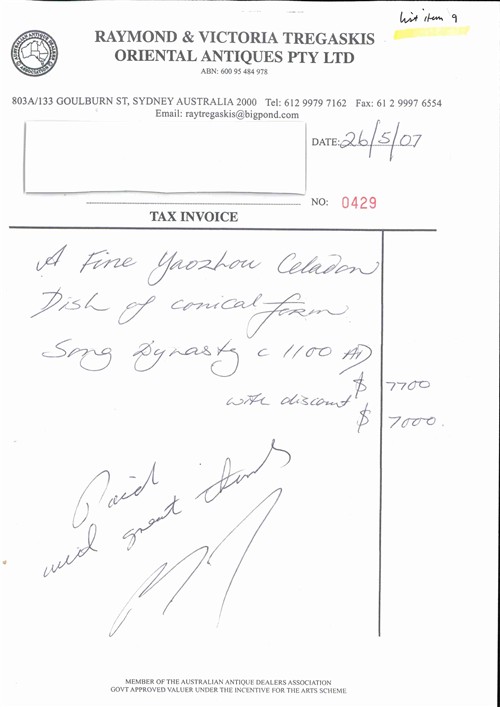 list item 9
RAYMOND & VICTORIA TREGASKIS
ORIENTAL ANTIQUES PTY LTD
ABN: 600 95 484 978
803A/133 GOULBURN ST, SYDNEY AUSTRALIA 2000 Tel: 612 9979 7162 Fax: 61 2 9997 6554
Email: raytregaskis@bigpond.com
DATE: 26/5/07
NO: 0429
TAX INVOICE
A Fine Yaozhou Celadon
Dish of conical form
Song Dynasty c 1100 AD
$ 7700
with discount
$ 7000.
Paid
with great thanks
MEMBER OF THE AUSTRALIAN ANTIQUE DEALERS ASSOCIATION
GOVT APPROVED VALUER UNDER THE INCENTIVE FOR THE ARTS SCHEME